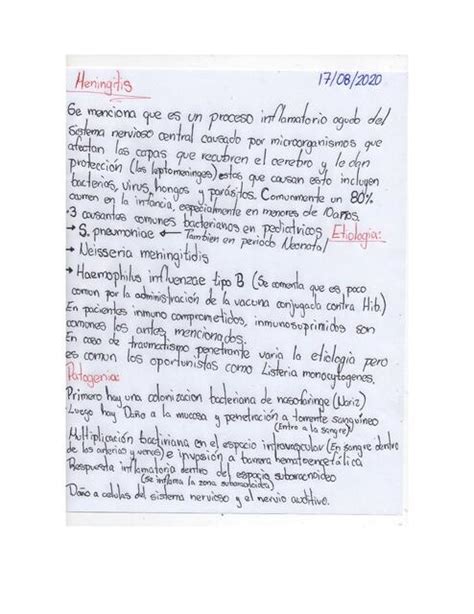 Meningitis 17/08/2020
Se menciona que es un proceso inflamatorio agudo del
sistema nervioso central causado por microorganismos que
afectan las capas que recubren el cerebro y le dan
protección (las leptomeninges) estas que causan esto incluyen
bacterias, virus, hongos y parásitos. Comunmente un 80%
ocurren en la infancia, especialmente en menores de 10 años.
·3 causantes comunes bacterianos en pediatricos Etiología:
→ S. pneumoniae ← Tambien en periodo Neonatal
→ Neisseria meningitidis
→ Haemophilus influenzae tipo B (Se comenta que es poco
comun por la administración de la vacuna conjugada contra Hib.)
En pacientes inmuno comprometidos, inmunosuprimidos son
comunes los antes mencionados.
En caso de traumatismo penetrante varia la etiología pero
es comun los oportunistas como Listeria monocytogenes.
Patogenia:
Primero hay una colonizacion bacteriana de nasofaringe (Nariz)
Luego hay Daño a la mucosa y penetración a torrente sanguíneo
(Entro a la sangre)
Multiplicación bactiriana en el espacio intravascular (En sangre dentro
de las arterias y venas) e irrupsión a barrera hematoencefálica
Respuesta inflamatoria dentro del espacio subaracnoideo
(se inflama la zona subaracnoidea)
Daño a celulas del sistema nervioso y el nervio auditivo.